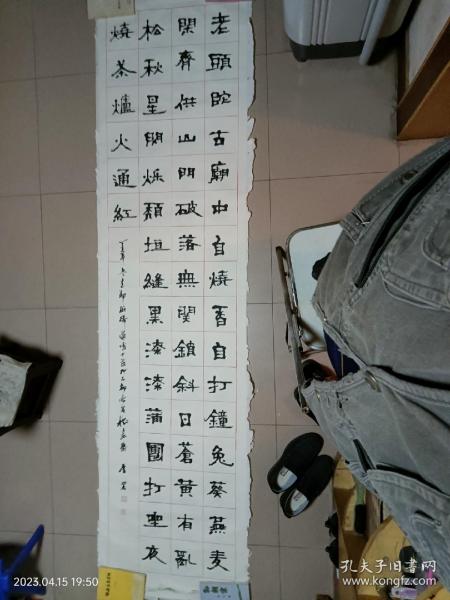 老頭陀古廟中自燒香自打鐘兔葵燕麦
閑齋供山門破落無関鎖斜日蒼黃有亂
松秋星閃烁頹垣縫黑漆漆蒲團打坐夜
燒茶爐火通紅
2023.04.15 19:50
孔夫子旧书网
www.kongfz.com